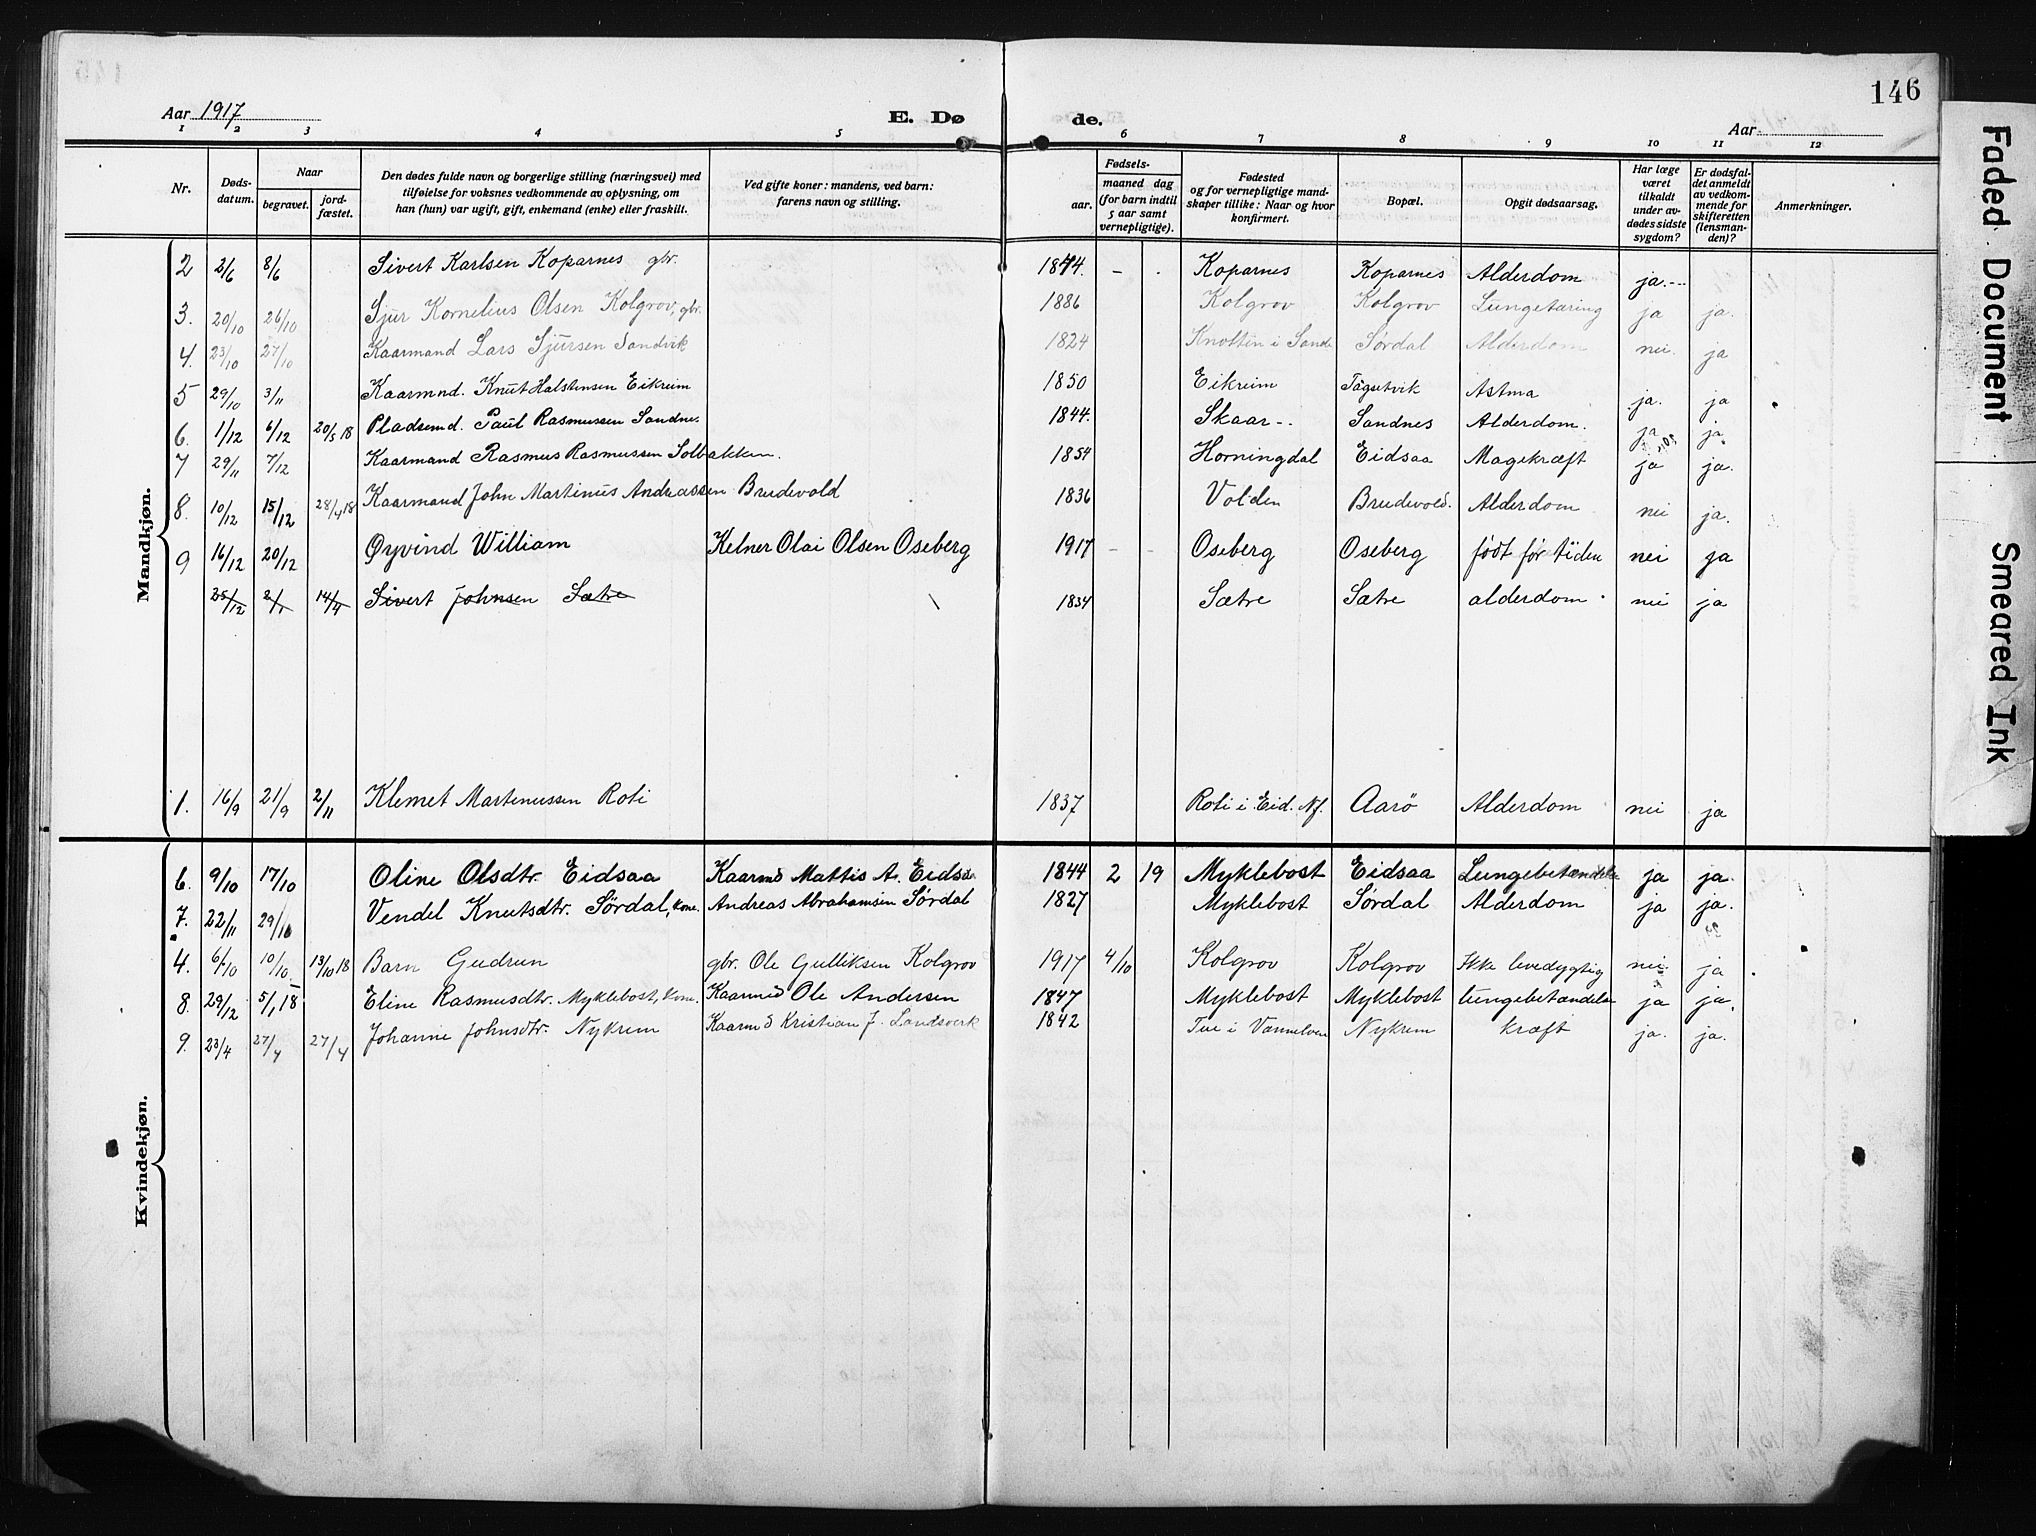 146
Aar 1917 E. Dø de. Aar
1 2 3 4 5 6 7 8 9 10 11 12
Nr. Døds-datum. Naar begravet. jord-fæstet. Den dødes fulde navn og borgerlige stilling (næringsvei) med tilføielse for voksnes vedkommende av oplysning, om han (hun) var ugift, gift, enkemand (enke) eller fraskilt. Ved gifte koner: mandens, ved barn: farens navn og stilling. Fødsels- aar. maaned dag (for barn indtil 5 aar samt vernepligtige). Fødested og for vernepligtige mand-skaper tillike: Naar og hvor konfirmert. Bopæl. Opgit dødsaarsag. Har læge været tilkaldt under av-dødes sidste sygdom? Er dødsfal-det anmeldt av vedkom-mende for skifteretten (lensman-den)? Anmerkninger.
Mandkjøn.
2 2/6 8/6 Sivert Karlsen Koparnes gbr. 1844. - Koparnes Koparnes Alderdom ja.--
3. 20/10 26/10 Sjur Kornelius Olsen Kolgrov, gbr. 1886 Kolgrov Kolgrov Lungetæring ja ja.
4. 23/10 27/10 Kaarmand Lars Sjursen Sandvik 1824 Knotten i Sande Sørdal Alderdom nei. ja
5 29/10 3/11 Kaarmnd. Knut Halstensen Eikrem 1850 Eikreim Astma ja. ja
6. 1/12 6/12 20/5 18 Pladsemd. Paul Rasmussen Sandnes 1844. Skaar-. Sandnes Alderdom. ja ja
7 29/11 7/12 Kaarmand Rasmus Rasmussen Solbakken. 1854 Horningdal Eidsaa Magekræft ja ja.
8. 10/12 15/12 28/4 18 Kaarmand John Martinus Andreassen Brudevold 1836 Volden Brudevold. Alderdom nei ja.
9 16/12 20/12 Øyvind William Kelner Olai Olsen Oseberg 1917 - - Oseberg Oseberg født før tiden nei ja
25/12 2/1 14/4 Sivert Johnsen Sætre 1834 Sætre Sætre alderdom nei ja
1. 16/9 21/9 2/11 Klemet Martenussen Roti 1837 Roti i Eid. Nf. Aarø Alderdom nei ja
Kvindekjøn.
6. 9/10 17/10 Oline Olsdtr. Eidsaa Kaarmd Mattis A. Eidsaa 1844 2 19 Myklebost Eidsaa Lungebetændelse ja ja.
7. 22/11 29/10 Vendel Knutsdtr. Sørdal, kone. Andreas Abrahamsen Sørdal 1827 Myklebost Sørdal Alderdom ja ja.
4. 6/10 10/10 13/10 18 Barn Gudrun gbr. Ole Gulliksen Kolgrov 1917 4/10 Kolgrov Kolgrov Ikke levedygtig nei ja
8. 29/12 5/1 18 Eline Rasmusdtr. Myklebost, kone. Kaarmd Ole Andersen 1847 Myklebost Myklebost lungebetændelse ja ja.
9. 23/4 27/4 27/4 Johanne Johnsdtr. Nykrem Kaarmd Kristian J. Landsverk 1842 Tue i Vannelven Nykrem kræft ja. ja.
Faded Document
Smeared Ink